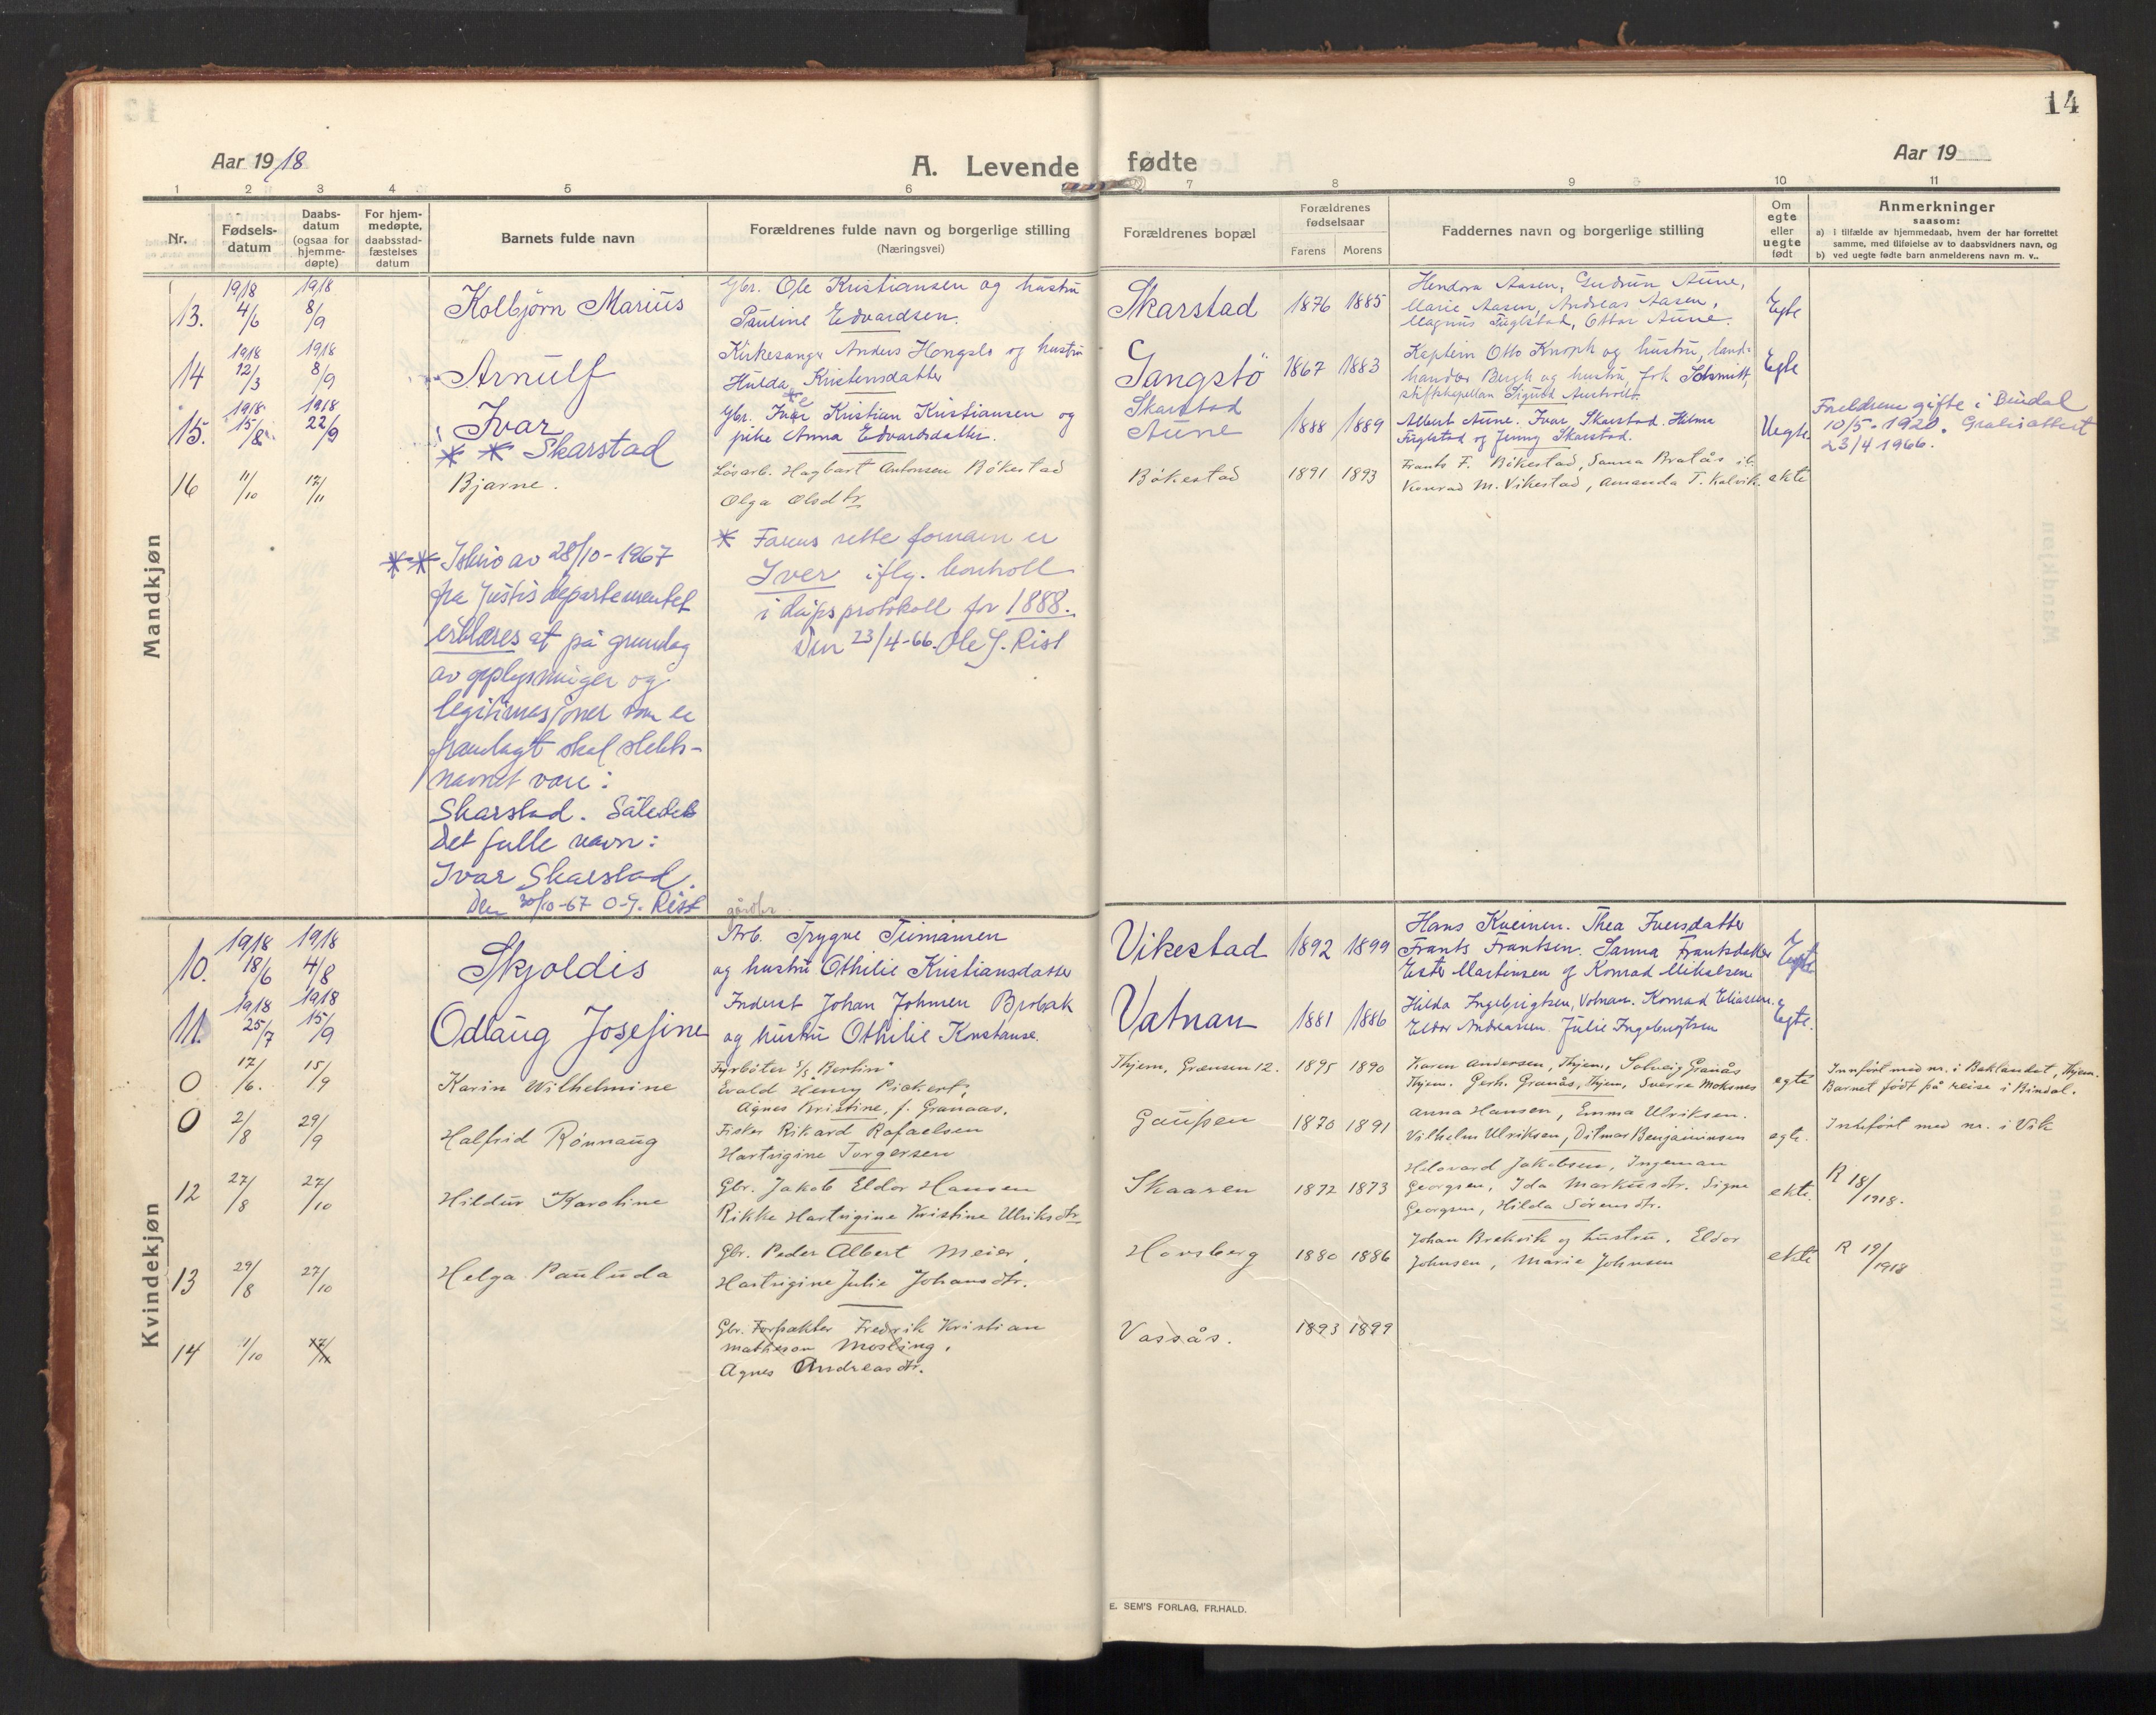 14
Aar 1918
A. Levende fødte
Aar 19
1 2 3 4 5 6 7 8 9 10 11
Nr.
Fødsels-
datum
Daabs-
datum
(ogsaa for
hjemme-
døpte)
For hjem-
medøpte,
daabsstad-
fæstelses
datum
Barnets fulde navn
Forældrenes fulde navn og borgerlige stilling
(Næringsvei)
Forældrenes bopæl
Forældrenes
fødselsaar
Farens Morens
Faddernes navn og borgerlige stilling
Om
egte
eller
uegte
født
Anmerkninger
saasom:
a) i tilfælde av hjemmedaab, hvem der har forrettet
samme, med tilføielse av to daabsvidners navn, og
b) ved uegte fødte barn anmelderens navn m. v..
Mandkjøn
13. 1918 4/6 1918 8/9
Kolbjörn Marius
Gbr. Ole Kristiansen og hustru
Pauline Edvardsen.
Skarstad
1876 1885
Hendora Aasen, Gudrun Aune,
Marie Aasen, Andreas Aasen,
Magnus Fuglstad, Ottar Aune.
Egte
14 1918 12/3 1918 8/9
Arnulf
Kirkesanger Anders Hongslo og hustru
Hulda Kristensdatter
Sangstö
1867 1883
Kaptein Otto Knoph og hustru, land-
handler Bergh og hustru, frk Schmitt,
stiftskapellan Sigurd
Egte
15. 1918 15/8 1918 22/9
Ivar
** Skarstad
Gbr. Ivar Kristian Kristiansen og
pike Anna Edvardsdatter.
Skarstad
Aune
1888 1889
Albert Aune. Ivar Skarstad. Hilma
Fuglstad og Jenny Skarstad.
Uegte.
Foreldrene gifte i Bindal
10/5-1920. Gratisattest
23/4 1966.
16 11/10 17/11
Bjarne.
Lösarb. Hagbart Antonsen Bökestad
Olga Olsdtr
Bökestad
1891 1893
Frants F. Bökestad, Sanna Bratås
Konrad M. Vikestad, Amanda T. Kalvik.
ekte
** I skriv av 28/10-1967
fra Justisdepartementet
erklæres at på grunnlag
av opplysninger og
legitimasjoner som er
framlagt skal slekts-
navnet være:
Skarstad. Således
det fulle navn:
Ivar Skarstad.
Den 30/10-67 O.J. Rist
* Farens rette fornavn er
Iver iflg. kontroll
i dåpsprotokoll for 1888.
Den 23/4-66. Ole J. Rist
Kvindekjøn
10. 1918 18/6 1918 4/8
Skjoldis
gårdbr.
Arb. Trygve Teimansen
og hustru Othilie Kristiansdatter
Vikestad
1892 1899
Hans Kveinen. Thea Iversdatter
Frants Frantsen. Sanna Frantsdatter
Ester Martinsen og Konrad Mikalsen
Egte
11. 1918 25/7 1918 15/9
Odlaug Josefine
Inderst Johan Johnsen Brobak
og hustru Othilie Konstanse.
Vatnan
1881 1886
Hilda Ingebrigtsen, Vatnan. Konrad Eliassen.
Eldor Andreassen. Julie Ingebrigtsen
Egte.
0 17/6. 15/9
Karin Wilhelmine
Fyrböter S/S "Berlin"
Evald Henry Pickert,
Agnes Kristine, f. Granaas.
Thjem, Grænsen 12.
1895 1890
Karen Andersen, Thjem, Solveig Granås
Thjem. Gerh. Granås, Thjem, Sverre Moksnes
egte
Innfört med nr. i Baklandet, Thjem.
Barnet födt på reise i Bindal.
0 2/8 29/9
Halfrid Rönnaug
Fisker Rikard Rafaelsen
Hartvigine Torgersen
Gaupen
1870 1891
Anna Hansen, Emma Ulriksen.
Vilhelm Ulriksen, Ditmar Benjaminsen
egte.
Innfört med nr. i Vik
12 27/8 27/10
Hildur Karoline
Gbr. Jakob Eldor Hansen
Rikke Hartvigine Kristine Ulriksdtr
Skaaren
1872 1873
Hilovard Jakobsen, Ingeman
Georgsen, Ida Markusdtr. Signe
Georgsen, Hilda Sörensdtr.
ekte.
R 18/1918.
13 29/8 27/10
Helga Pauluda
Gbr. Peder Albert Meier,
Hartvigine Julie Johansdtr.
Horsberg
1880 1886
Johan Brekvik og hustru. Eldor
Johnsen, Marie Johnsen
ekte
R 19/1918
14 11/10 17/11
Gbr. Forpakter Fredrik Kristian
Matheson Mosling,
Agnes Andreasdtr.
Vassås.
1893 1899
E. SEM'S FORLAG, FR.HALD.